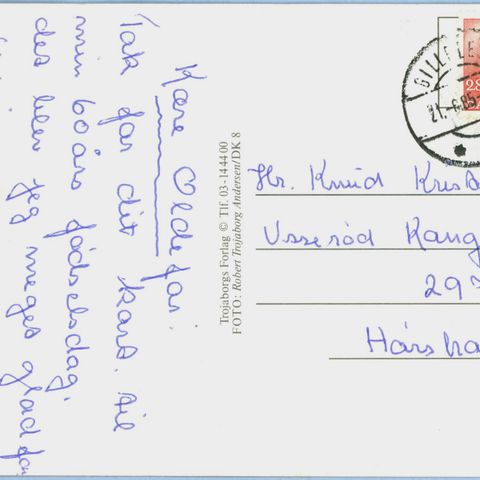 Kære Oldefar.
Tak for dit kort til
min 60 års fødselsdag,
det blev jeg meget glad for
Trojaborgs Forlag © Tlf. 03-14 44 00
FOTO: Robert Trojaborg Andersen/DK 8
GILLELE
21.-6.85
Hr. Knud Kris
Usserød Kong
29
Hørsho